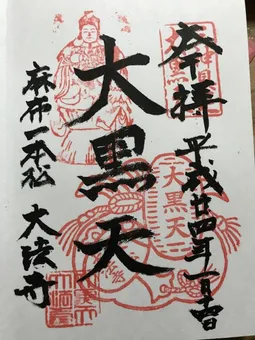 奉拝
平成廿四年一月四日
大黒天
麻布一本松
大法寺
大黒天